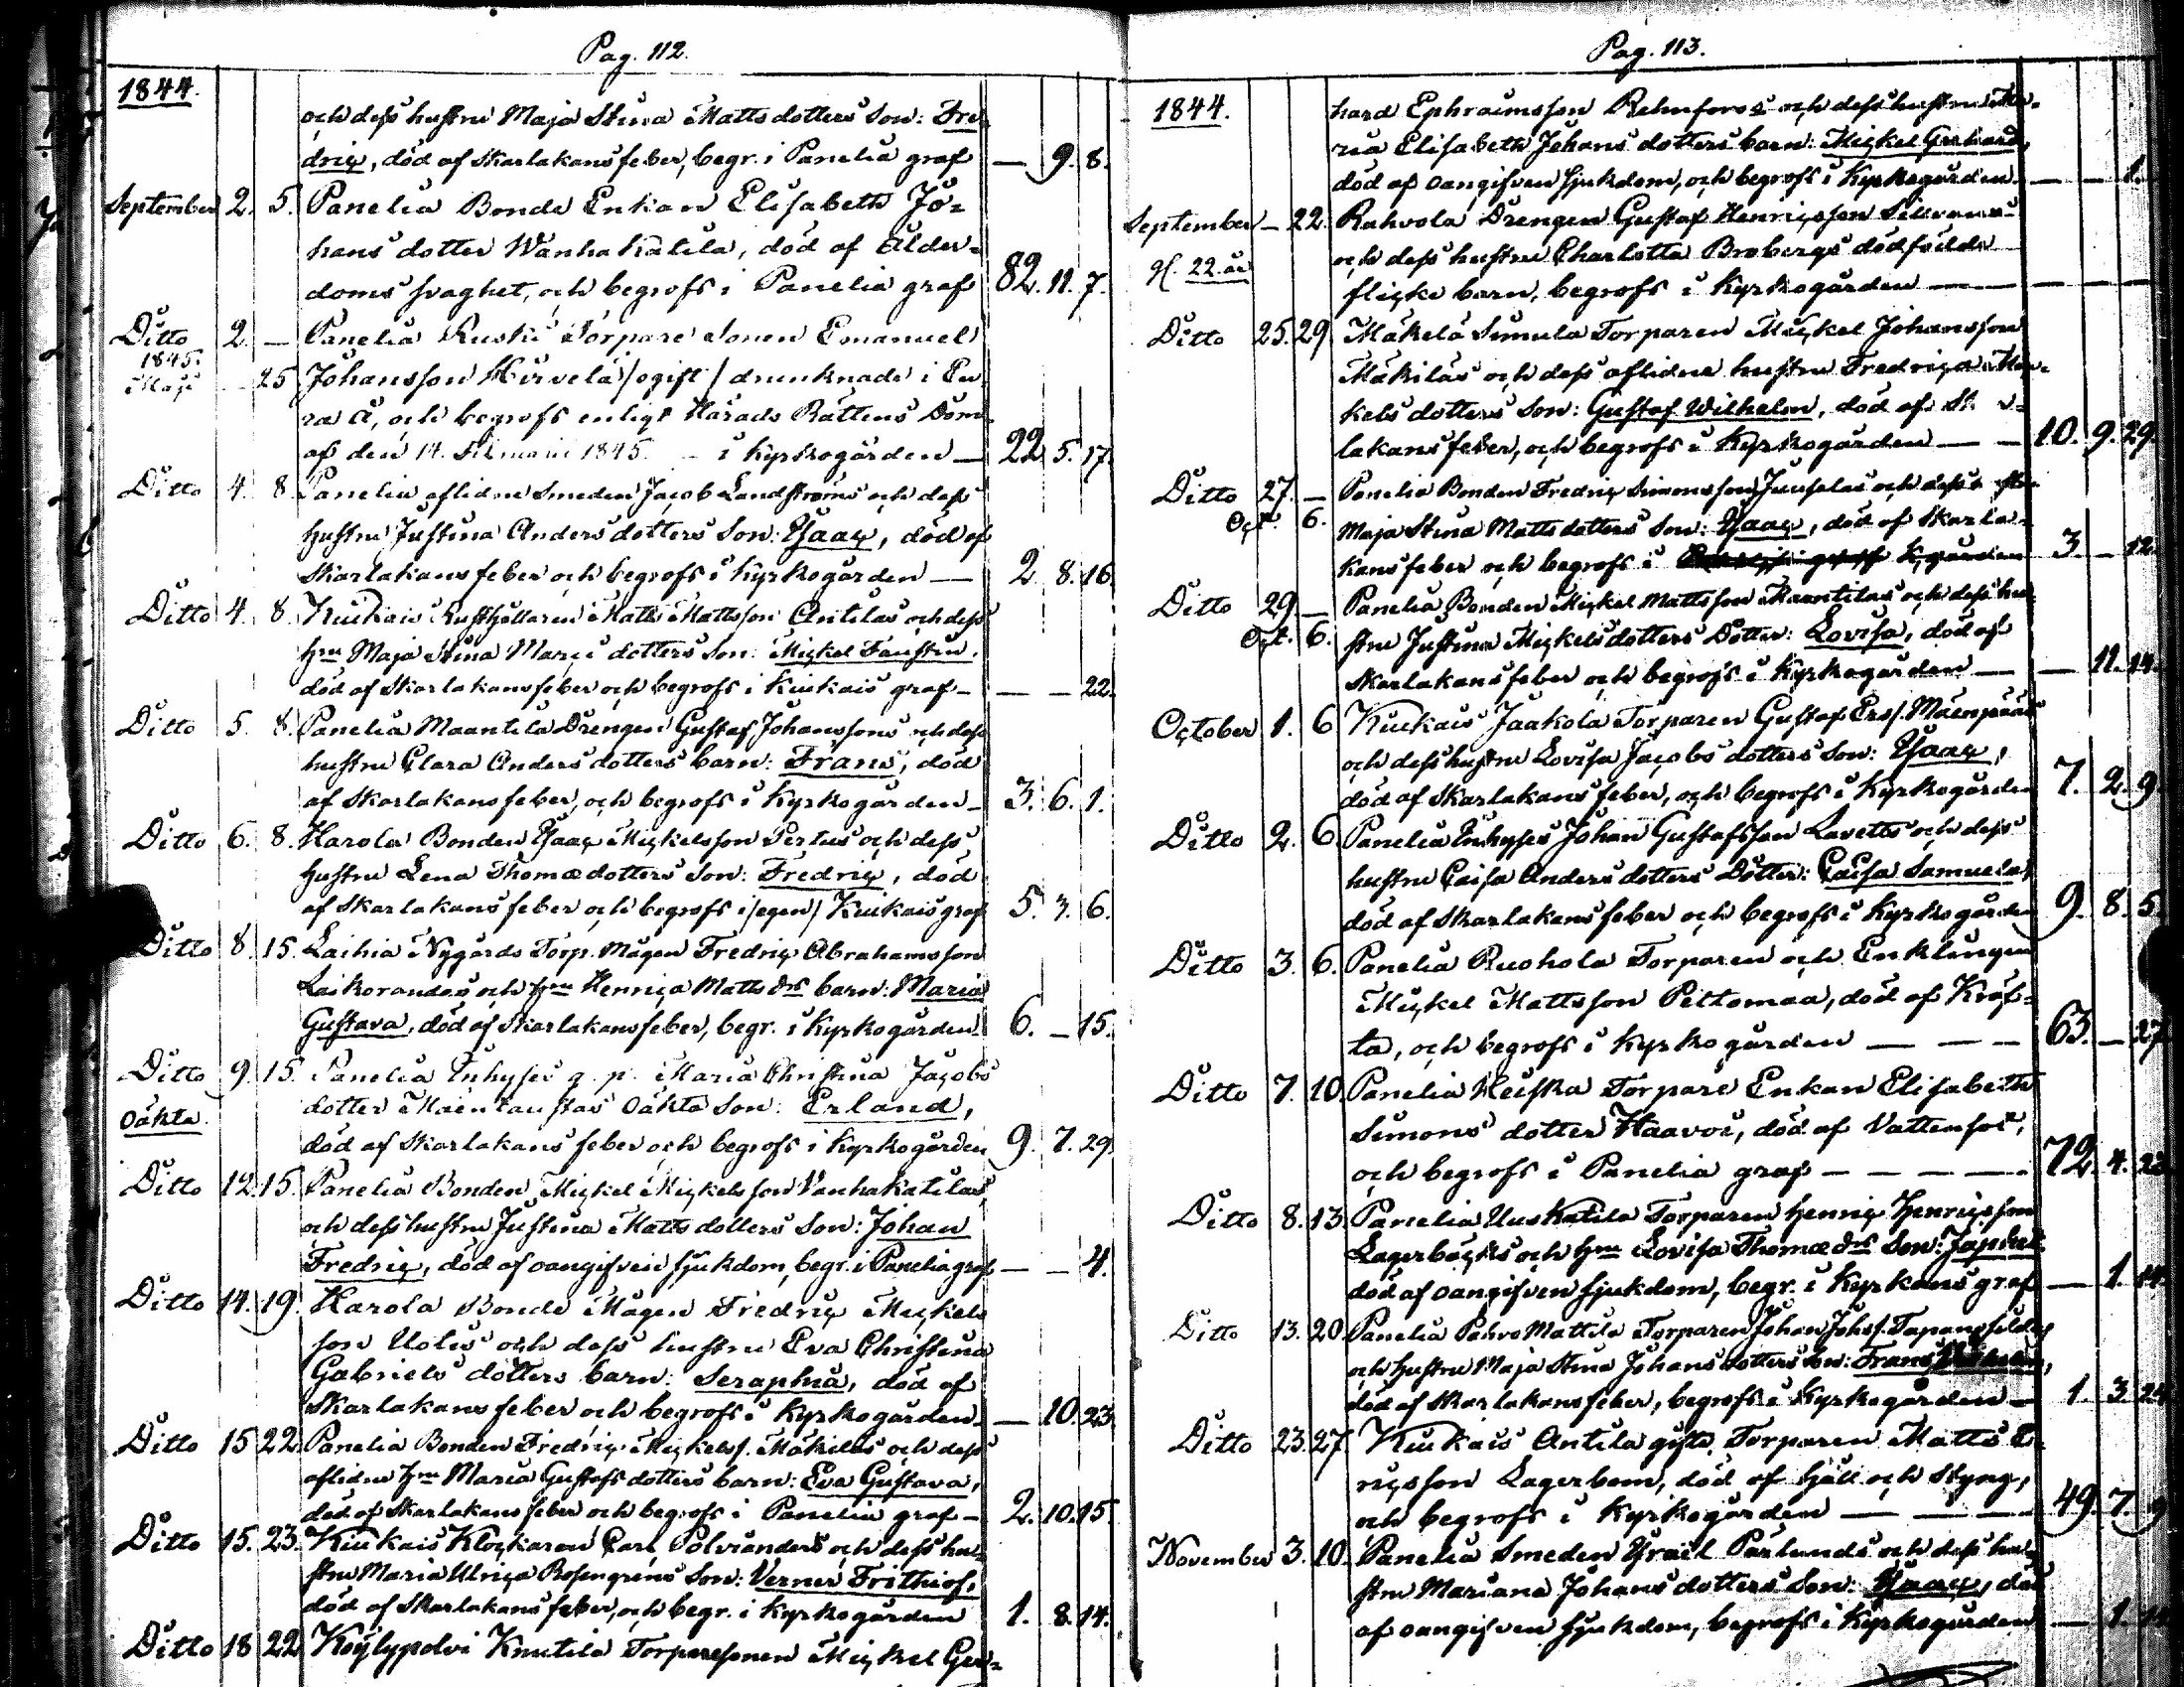 Pag. 112.
1844.
och dess hustru Maja Stina Matts dotters Son: Fre-
driç, död af Skarlakansfeber, begr. i Panelia graf — 9. 8.
September 2. 5. Panelia Bonde Enkan Elisabeth Jo-
hans dotter Wanhakatila, död af ålder-
doms svaghet, och begrofs i Panelia graf 82. 11. 7.
Ditto 2. — Panelia Ruski Torpare Sonen Emanuel
1845. Maji 25 Johansson Hirvelä /ogift/ drunknade i Eu-
ra å, och begrofs enligt Härads Rättens Dom
af den 14. 1845. i Kyrkogården — 22 5. 17.
Ditto 4. 8. Panelia aflidne Smeden Jacob Landströms och dess
hustru Justina Anders dotters Son: Ysaaç, död af
Skarlakansfeber och begrofs i Kyrkogården — 2. 8. 16.
Ditto 4. 8. Kiukais Rusthållaren Matts Mattsson Antilas och dess
hru Maja Stina Marci dotters Son: Miçkel Faustin,
död af Skarlakansfeber och begrofs i Kiukais graf — — — 22.
Ditto 5. 8. Panelia Maantila Drengen Gustaf Johanssons och dess
hustru Clara Anders dotters barn: Frans, död
af Skarlakansfeber, och begrofs i Kyrkogården — 3. 6. 1.
Ditto 6. 8. Harola Bonden Ysaaç Miçkelsson Pertus och dess
hustru Lena Thomæ dotters Son: Fredriç, död
af Skarlakansfeber och begrofs i /egen/ Kiukais graf 5. 3. 6.
Ditto 8. 15. Laihia Nygårds Torp. Mågen Fredriç Abrahamsson
Laikorandas och hru Henriça Matts drs barn: Maria
Gustava, död af Skarlakansfeber, begr. i Kyrkogården 6. — 15.
Ditto 9. 15. Panelia Inhyses q. p. Maria Christina Jacobs
Oäkta. dotter Mäentaustas Oäkta Son: Erland,
död af Skarlakansfeber och begrofs i Kyrkogården 9. 7. 29.
Ditto 12. 15. Panelia Bonden Miçkel Miçkelsson Vanhakatilas
och dess hustru Justina Matts dotters Son: Johan
Fredriç, död af oangifven sjukdom, begr. i Panelia graf — — 4.
Ditto 14. 19. Harola Bonde Mågen Fredriç Miçkels
son Uolis och dess hustru Eva Christina
Gabriels dotters barn: Seraphia, död af
Skarlakansfeber och begrofs i Kyrkogården — — 10. 23.
Ditto 15 22. Panelia Bonden Fredriç Miçkelss. Mäkilas och dess
aflidne hru Maria Gustafs dotters barn: Eva Gustava,
död af Skarlakansfeber och begrofs i Panelia graf — 2. 10. 15.
Ditto 15. 23. Kiukais Kloçkaren Carl Polvianders och dess hu-
stru Maria Ulriça Rosengrens Son: Verner Frithiof,
död af Skarlakansfeber, och begr. i Kyrkogården 1. 8. 14.
Ditto 18 22 Köylypolvi Knutila Torparesonen Miçkel Ger-
Pag. 113.
1844.
hard Ephraimsson Rehnfors och dess hustru Ma-
ria Elisabeth Johans dotters barn: Miçkel Gerhard,
död af oangifven sjukdom, och begrofs i Kyrkogården — — 1.
September — 22. Rahvola Drengen Gustaf Henriçsson
gl. 22 år och dess hustru Charlotta Brobergs dödfödde
fliçke barn, begrofs i Kyrkogården —
Ditto 25. 29. Mäkelä Simula Torparen Miçkel Johansson
Mäkiläs och dess aflidne hustru Fredriça Miç-
kels dotters Son: Gustaf Wilhelm, död af Skar-
lakansfeber, och begrofs i Kyrkogården — — 10. 9. 29.
Ditto 27. — Panelia Bonden Fredriç Simonsson Juuselas och dess
Oçt. 6. Maja Stina Matts dotters Son: Ysaaç, död af Skarla-
kansfeber och begrofs i K,gården 3. — 12.
Ditto 29. — Panelia Bonden Miçkel Mattsson Maantilas och dess hu
Oçt. 6. stru Justina Miçkels dotters Dotter: Lovisa, död af
Skarlakansfeber och begrofs i Kyrkogården — — 11. 14.
October 1. 6 Kiukais Jaakola Torparen Gustaf Erss. Mäenpääs
och dess hustru Lovisa Jaçobs dotters Son: Ysaaç,
död af Skarlakansfeber, och begrofs i Kyrkogården 7. 2. 9.
Ditto 2. 6 Panelia Inhyses Johan Gustafsson Lavetts och dess
hustru Caisa Anders dotters Dotter: Caisa Samuela,
död af Skarlakansfeber och begrofs i Kyrkogården 9. 8. 5.
Ditto 3. 6. Panelia Ruohola Torparen och Enklingen
Miçkel Mattsson Peltomaa, död af Kräf-
ta, och begrofs i Kyrkogården — — — 63. — 27.
Ditto 7. 10. Panelia Heiska Torpare Enkan Elisabeth
Simons dotter Haavoi, död af Vattensot,
och begrofs i Panelia graf — — — — 72. 4.
Ditto 8. 13. Panelia Uuskatila Torparen Henriç Henriçsson
Lagerböçks och hru Lovisa Thomæ drs Son: Japhet
död af oangifven sjukdom, begr. i Kyrkans graf — 1. 14.
Ditto 13. 20. Panelia Pahvo Mattila Torparen Johan Johss.
och hustru Maja Stina Johans dotters Son: Frans
död af Skarlakansfeber, begrofs i Kyrkogården — 1. 3. 24
Ditto 23. 27. Kiukais Antila gifte Torparen Matts E-
riçsson Lagerbom, död af håll och styng,
och begrofs i Kyrkogården — — — 49. 7. 9
November 3. 10. Panelia Smeden Ysraël Pärlunds och dess hu-
stru Mariana Johans dotters Son: Ysaaç, död
af oangifven sjukdom, begrofs i Kyrkogården — 1.